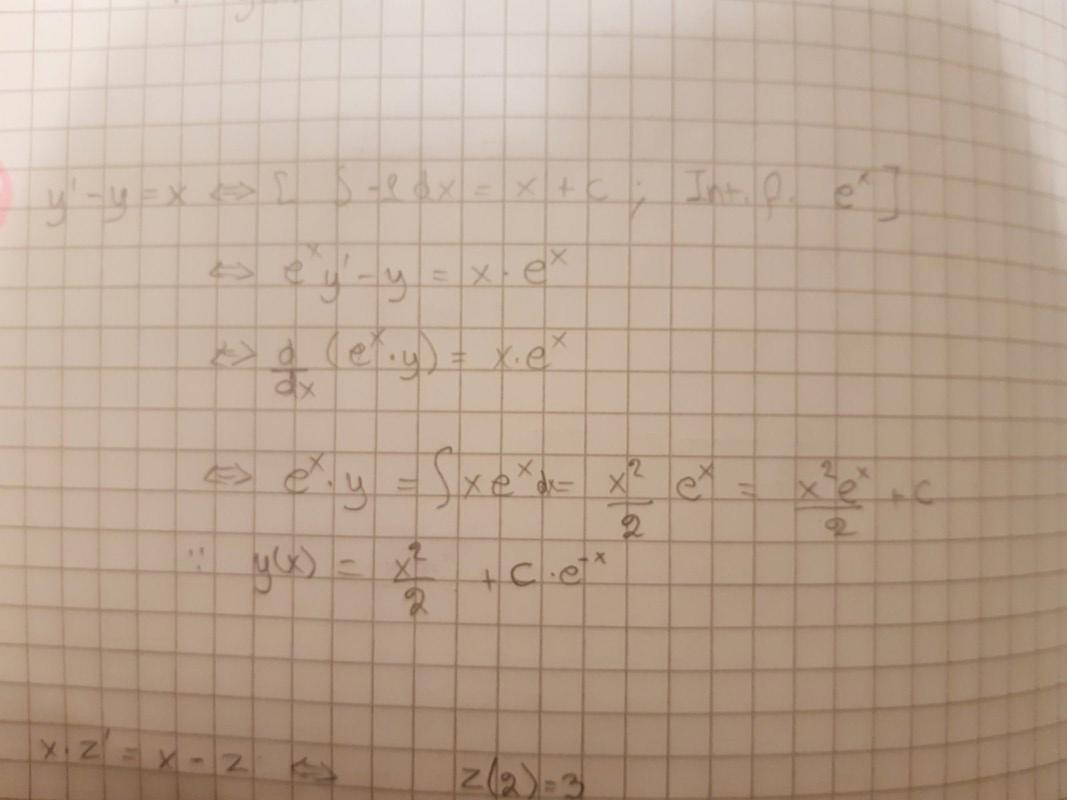 y' - y = x ⇔ [ ∫ -1 dx = x + c ; Int. f. e^x ]
⇔ e^x y' - y = x · e^x
⇔ d/dx (e^x · y) = x · e^x
⇔ e^x · y = ∫ x e^x dx = x^2/2 e^x = x^2 e^x/2 + C
∵ y(x) = x^2/2 + C · e^-x
x · z' = x - z ⇔ z(2) = 3